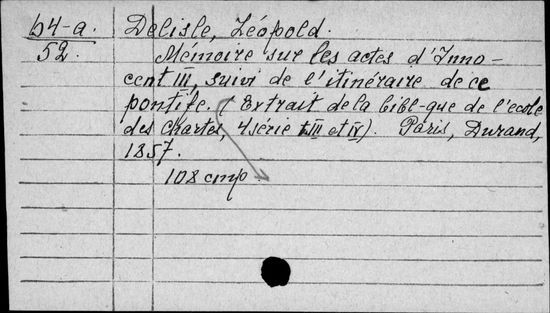 54-a. Delisle, Léopold.
52. Mémoire sur les actes d'Inno-
cent III, suivi de l'itinéraire de ce
pontife. (Extrait de la bibl-que de l'ecole
des chartes, 4 série t III et IV). Paris, Durand,
1857.
108 стр.